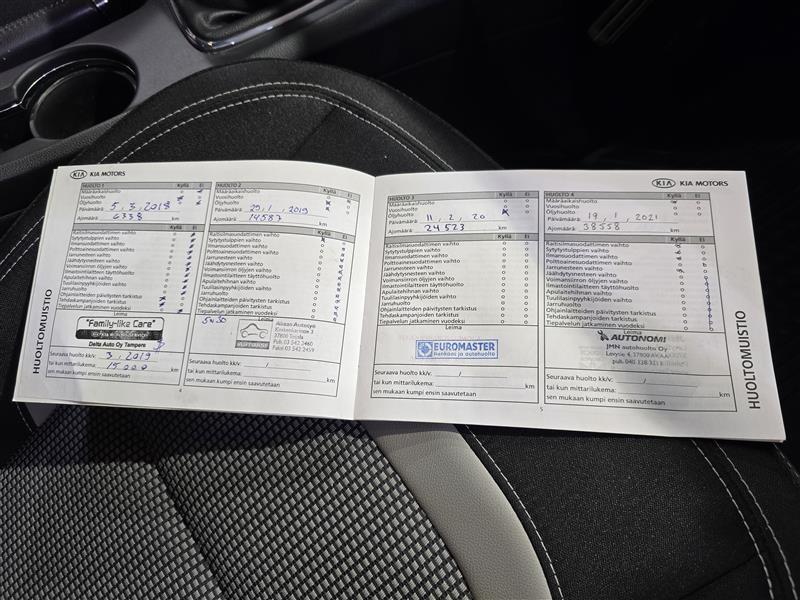 KIA KIA MOTORS
HUOLTOMUISTIO
HUOLTO 1 Kyllä Ei
Määräaikaishuolto
Vuosihuolto
Öljyhuolto
Päivämäärä: 5.3.2018
Ajomäärä: 6338 km
Raitisilmasuodattimen vaihto
Sytytystulppien vaihto
Ilmansuodattimen vaihto
Polttoainesuodattimen vaihto
Jarrunesteen vaihto
Jäähdytysnesteen vaihto
Voimansiirron öljyjen vaihto
Ilmastointilaitteen täyttöhuolto
Apulaitehihnan vaihto
Tuulilasinpyyhkijöiden vaihto
Jarruhuolto
Ohjainlaitteiden päivitysten tarkistus
Tehdaskampanjoiden tarkistus
Tiepalvelun jatkaminen vuodeksi
Leima
"Family-like Care"
Delta Auto Oy Tampere
Seuraava huolto kk/v: 3.2019
tai kun mittarilukema: 15000 km
sen mukaan kumpi ensin saavutetaan
4
HUOLTO 2 Kyllä Ei
Määräaikaishuolto
Vuosihuolto
Öljyhuolto
Päivämäärä: 29.1.2019
Ajomäärä: 14587 km
Raitisilmasuodattimen vaihto
Sytytystulppien vaihto
Ilmansuodattimen vaihto
Polttoainesuodattimen vaihto
Jarrunesteen vaihto
Jäähdytysnesteen vaihto
Voimansiirron öljyjen vaihto
Ilmastointilaitteen täyttöhuolto
Apulaitehihnan vaihto
Tuulilasinpyyhkijöiden vaihto
Jarruhuolto
Ohjainlaitteiden päivitysten tarkistus
Tehdaskampanjoiden tarkistus
Tiepalvelun jatkaminen vuodeksi
5W30 Leima
37800 Toijala
Puh.03 542 2460
Faksi 03 542 2459
Seuraava huolto kk/v: /
tai kun mittarilukema: km
sen mukaan kumpi ensin saavutetaan
HUOLTO 3 Kyllä Ei
Määräaikaishuolto
Vuosihuolto
Öljyhuolto
Päivämäärä: 11.2.20
Ajomäärä: 24523 km
Raitisilmasuodattimen vaihto
Sytytystulppien vaihto
Ilmansuodattimen vaihto
Polttoainesuodattimen vaihto
Jarrunesteen vaihto
Jäähdytysnesteen vaihto
Voimansiirron öljyjen vaihto
Ilmastointilaitteen täyttöhuolto
Apulaitehihnan vaihto
Tuulilasinpyyhkijöiden vaihto
Jarruhuolto
Ohjainlaitteiden päivitysten tarkistus
Tehdaskampanjoiden tarkistus
Tiepalvelun jatkaminen vuodeksi
Leima
EUROMASTER
Rengas ja autohuolto
Seuraava huolto kk/v: /
tai kun mittarilukema: km
sen mukaan kumpi ensin saavutetaan
5
KIA KIA MOTORS
HUOLTO 4 Kyllä Ei
Määräaikaishuolto
Vuosihuolto
Öljyhuolto
Päivämäärä: 19.1.2021
Ajomäärä: 38558 km
Raitisilmasuodattimen vaihto
Sytytystulppien vaihto
Ilmansuodattimen vaihto
Polttoainesuodattimen vaihto
Jarrunesteen vaihto
Jäähdytysnesteen vaihto
Voimansiirron öljyjen vaihto
Ilmastointilaitteen täyttöhuolto
Apulaitehihnan vaihto
Tuulilasinpyyhkijöiden vaihto
Jarruhuolto
Ohjainlaitteiden päivitysten tarkistus
Tehdaskampanjoiden tarkistus
Tiepalvelun jatkaminen vuodeksi
Leima
AUTONOMI
JMN autohuolto Oy
Seuraava huolto kk/v: /
tai kun mittarilukema: km
sen mukaan kumpi ensin saavutetaan
HUOLTOMUISTIO